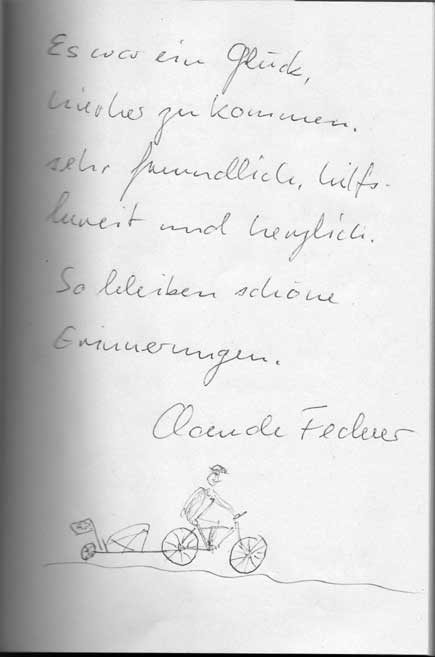 Es war ein Glück,
hierher zu kommen.
sehr freundlich, hilfs-
bereit und herzlich.
So bleiben schöne
Erinnerungen.
Claude Fechner